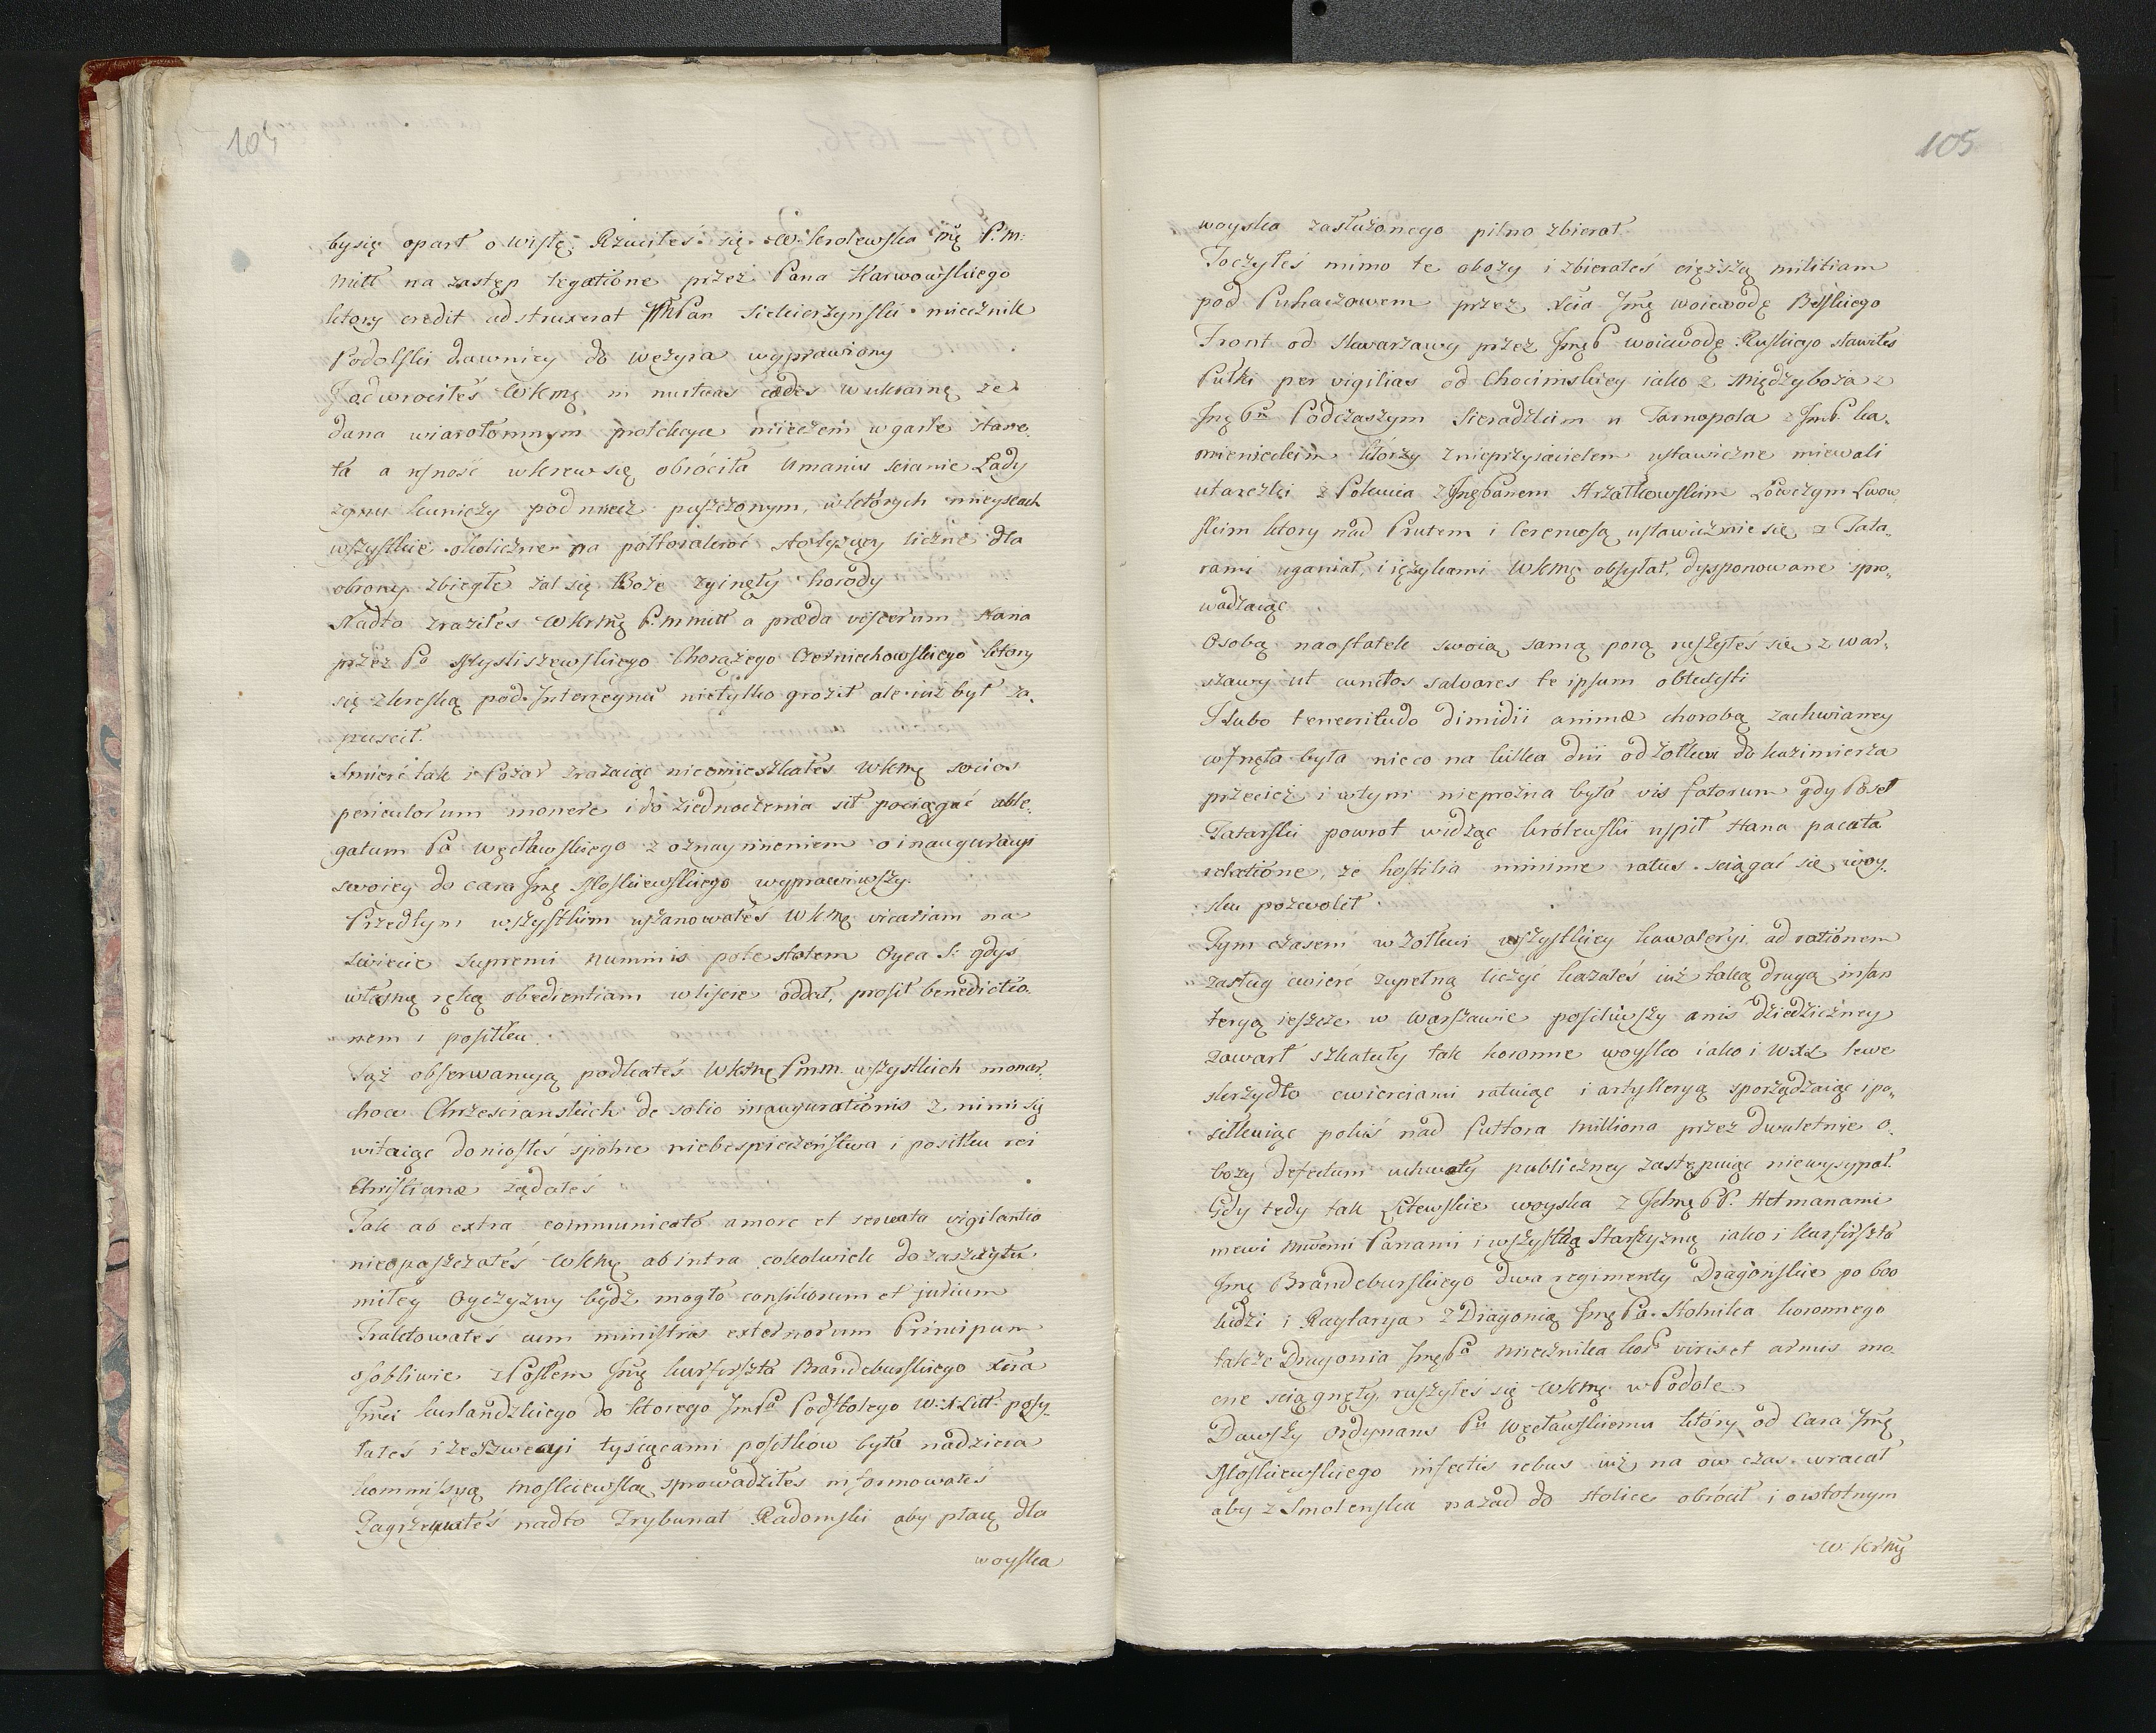 104
bysię oparł o Wisłę. Rzuciłeś się W. Krolewska Mę P. M:
Mitt na zastęp legatione przez Pana Karwowskiego
ktory credit adstruxerat JMPan Siekierzynski miecznik
Podolski dawniey do Wezyra wyprawiony
J odwrociłeś WKMę in nuituas cædes w ukrainę ze
dana wiarołomnym protekcya mieczem w garle stane„
ła a ufność w krew się obróciła Umaniu scianie Lady
zynu kuniczy pod miecz puszczonym, w których mieyscach
wszystkie okoliczne na połtorakroć sto tysięcy liczne dla
obrony zbiegłe żal się Boże zginęły horody
Nadto zraziłes WKrMę P. M mitt a præda viscerum Hana
przez Pa Mysliszewskiego Chorążego Czerniechowskiego ktory
się z kreską pod Interregnu nietylko groził ale iuż był za„
puscił.
Smierć tak i Pożar zrażaiąc nieomieszkałeś WKMę socios
periculorum monere i do ziednoczenia sił pociągnąć able„
gatum Pa Węsławskiego z oznaymieniem o inauguracyi
swoiey do Cara Jmę Moskiewskiego wyprawiwszy.
Przedtym wszystkim uszanowałeś WKMę vicariam na
swiecie supremi numinis potestatem Oyca S: gdyś
własną ręką obedientiam w lisere oddał, prosił benedictio„
nem i posiłku.
Tąż obserwancyą podkałeś WKMę Pmm. wszystkich monar„
chow Chrzescianskich de solio inaugurationis z nimi się
witaiąc doniosłeś spolne niebespieczeństwa i posiłku rei
Christianæ żądałeś
Tak ab extra communicato amore et servata vigilantia
nieopaszczałeś WKMę ab intra cokolwiek do zaszczytu
miłey Oyczyzny bydź mogło consiliorum et judium
Traktowałeś cum ministris externorum Principum
osobliwie z Posłem Jmę kurfirszta Brandeburskiego Xcia
Jmci kurlandzkiego do ktorego JmPa Podstolego W: X Litt: posy„
łałeś i ze Szwecyi tysiącami posiłkow była nadzieia
kommissyą Moskiewską sprowadziłes informowałes
Zagrzewałeś nadto Trybunał Radomski aby płacę dla
woyska
105
woyska zasłużonego pilno zbierał
Toczyłeś mimo te obozy i zbierałeś cięższą militiam
pod Puhaczowem przez Xcia Jmę woiewodę Bełskiego
Front od Skwarzawy przez JmęP woiewodę Ruskiego stawiłes
Pułki per vigilias od Chocimskiey iako z Międzyboża z
Jmę Pm Podczaszym Sieradzkim u Tarnopola z JmP. ka„
mienieckim którzy z nieprzyiacielem ustawiczne miewali
utarczki z Pokucia z JmęPanem Strzałkowskim Łowczym Lwow
skim ktory nad Prutem i Ceremosą ustawicznie się z Tata„
rami uganiał, i ięzykami WKMę obsyłał, dysponowane spro„
wadzaiąc
Osobą naostatek swoią samą porą ruszyłeś się z War„
szawy ut cunctos salvares te ipsum obtulisti
I lubo teneritudo dimidii animæ chorobą zachwianey
cofnęła była nieco na kilka dni od Zołkwi do Kazimierza
przecież i w tym nieprożna była vis fatorum gdy Poseł
Tatarski powrot widząc królewski uspił Hana pacata
relatione, że hostilia minime ratus sciągać się woy„
sku pozwolił.
Tym czasem w Zołkwi wszystkiey kawaleryi, ad rationem
zasług cwierć zupełną liczyć kazałeś iuż taką drugą infan
teryą ieszcze w Warszawie posiliwszy aniś dziedziczney
zawarł szkatuły tak koronne woysko iako i WXL lewe
skrzydło cwierciami ratuiąc i artylleryą sporządzaiąc i po„
siłkuiąc pokiś nad Puttora milliona przez dwuletnie o„
bozy defectum uchwały publiczney zastępuiąc niewysypał.
Gdy tedy tak Litewskie woyska z JchmęPP. Hetmanami
mewi Mwemi Panami i wszystką Starszyzną iako i kurfirszta
Jmę Brandeburskiego dwa regimenty Dragońskie po 600
ludzi i Raytarya z Dragonią Jmę Pa. Stolnika koronnego
także Dragonia JmęPa Miecznika kor: viris et armis mo„
cne sciągnęły, ruszyłeś się WKMę w Podole
Dawszy ordynans Pu Węsławskiemu który od Cara Jmę
Moskiewskiego infectis rebus iuż na ow czas wracał
aby z Smolenska nazad do stolice obrócił i o wtotnym
W. KrMę